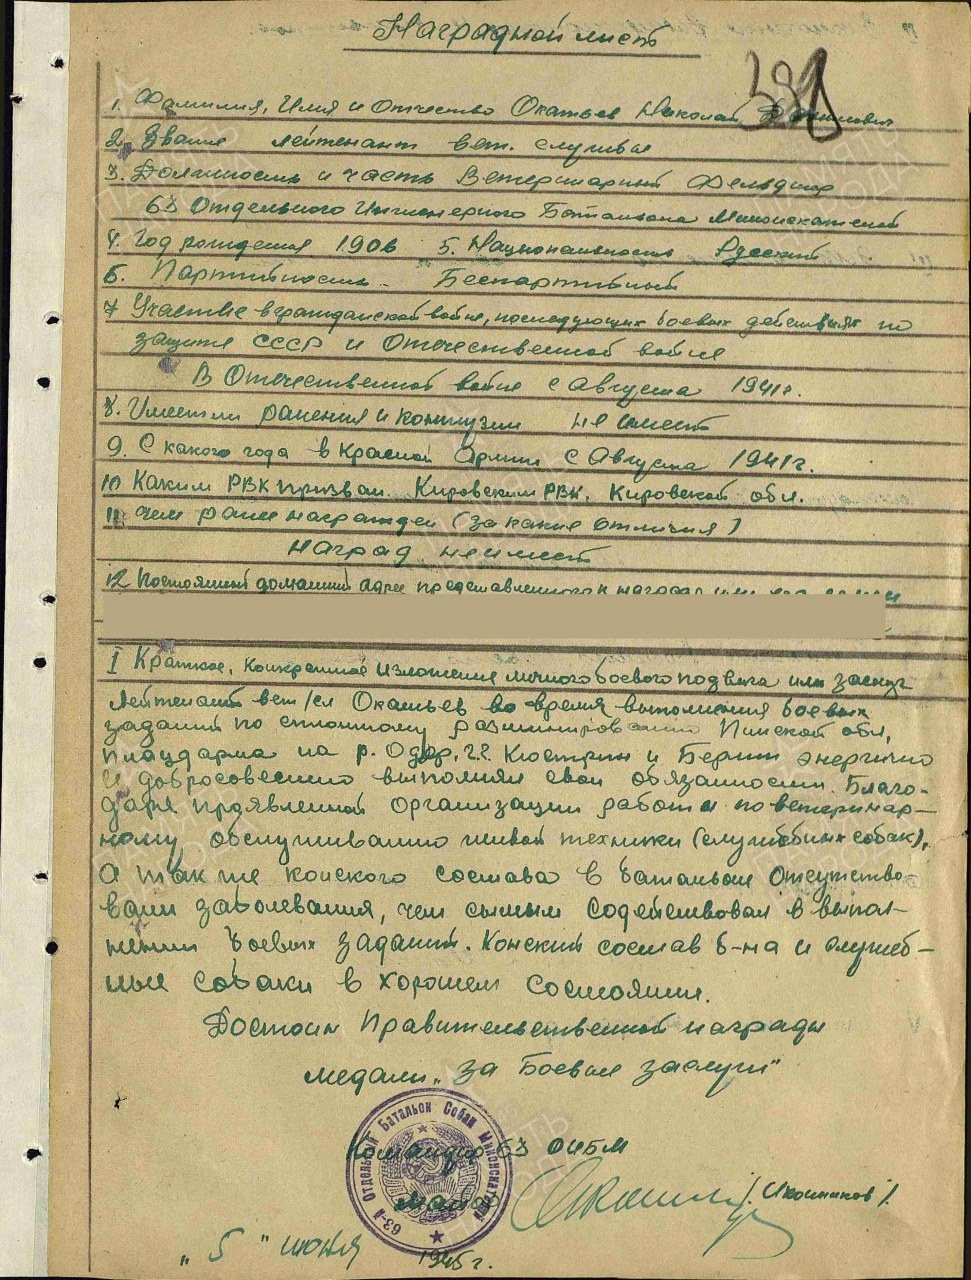 Наградной лист
1. Фамилия, Имя и Отчество Окатьев Николай
2. Звание лейтенант вет. службы
3. Должность и часть Ветеринарный Фельдшер
63 Отдельного Инженерного Батальона Миноискателей
4. Год рождения 1906 5. Национальность Русский
6. Партийность - Беспартийный
7 Участие в гражданской войне, последующих боевых действиях по
защите СССР и Отечественной войне
В Отечественной войне с Августа 1941г.
8. Имеет ли ранения и контузии не имеет
9. С какого года в Красной Армии с Августа 1941г.
10 Каким РВК призван. Кировским РВК, Кировской обл.
11 Чем ранее награжден (за какие отличия)
Наград не имеет
12 Постоянный домашний адрес представленного к
I Краткое, конкретное изложение личного боевого подвига или заслуг
Лейтенант вет/сл Окатьев во время выполнения боевых
заданий по сплошному разминированию Пинской обл,
плацдарма на р. Одер, г.г. Кюстрин и Берлин энергично
и добросовестно выполнял свои обязанности. Благо-
даря проявленной организации работы по ветеринар-
ному обслуживанию живой техники (служебных собак),
а так же конского состава в батальоне отсутство-
вали заболевания, чем самым содействовал в выпол-
нении боевых заданий. Конский состав б-на и служеб-
ные собаки в хорошем состоянии.
Достоин Правительственной награды
медали „За Боевые заслуги"
Командир 63 ОИБМ
майор /Иконников/.
„5" июня 1945г.
63-й Отдельный Батальон Собак Миноискателей